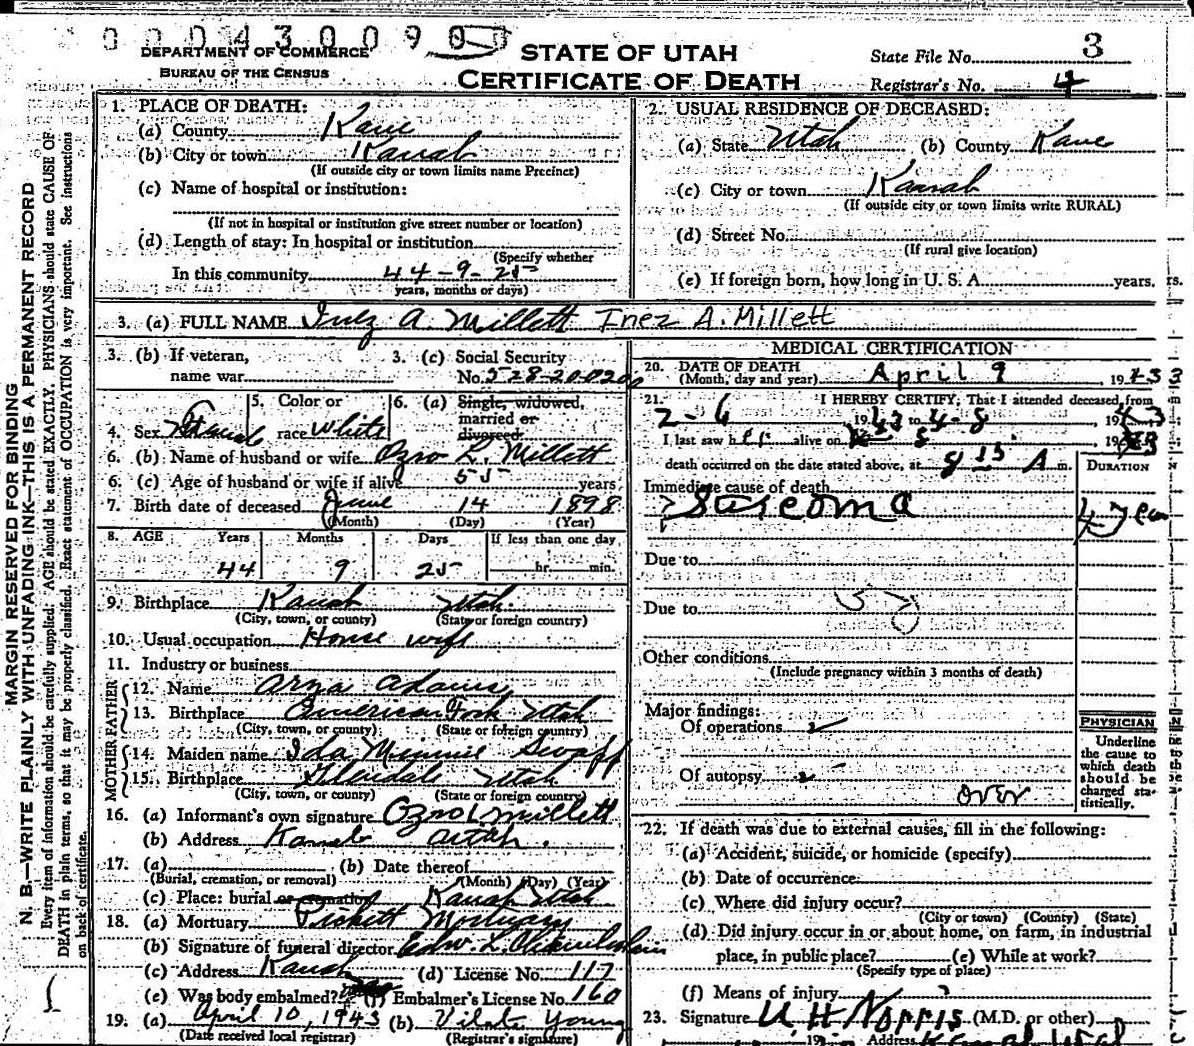 0 0 0 4 3 0 0 9 0
DEPARTMENT OF COMMERCE
BUREAU OF THE CENSUS
STATE OF UTAH
CERTIFICATE OF DEATH
State File No. 3
Registrar's No. 4
MARGIN RESERVED FOR BINDING
N. B.—WRITE PLAINLY WITH UNFADING INK—THIS IS A PERMANENT RECORD
Every item of information should be carefully supplied. AGE should be stated EXACTLY. PHYSICIANS should state CAUSE OF
DEATH in plain terms, so that it may be properly classified. Exact statement of OCCUPATION is very important. See instructions
on back of certificate.
1. PLACE OF DEATH:
(a) County Kane
(b) City or town Kanab
(If outside city or town limits name Precinct)
(c) Name of hospital or institution:
(If not in hospital or institution give street number or location)
(d) Length of stay: In hospital or institution
(Specify whether
In this community 44-9-25
years, months or days)
2. USUAL RESIDENCE OF DECEASED:
(a) State Utah (b) County Kane
(c) City or town Kanab
(If outside city or town limits write RURAL)
(d) Street No.
(If rural give location)
(e) If foreign born, how long in U. S. A. years.
3. (a) FULL NAME Inez A. Millett Inez A. Millett
3. (b) If veteran,
name war
3. (c) Social Security
No. 528-20-020
4. Sex Female
5. Color or
race White
6. (a) Single, widowed,
married or
divorced
6. (b) Name of husband or wife Ozro L. Millett
6. (c) Age of husband or wife if alive 55 years
7. Birth date of deceased June 14 1898
(Month) (Day) (Year)
8. AGE Years Months Days If less than one day
44 9 25 hr. min.
9. Birthplace Kanab Utah
(City, town, or county) (State or foreign country)
10. Usual occupation House wife
11. Industry or business
FATHER
12. Name Arza Adams
13. Birthplace American Fork Utah
(City, town, or county) (State or foreign country)
MOTHER
14. Maiden name Ida Minnie Swapp
15. Birthplace Glendale Utah
(City, town, or county) (State or foreign country)
16. (a) Informant's own signature Ozro L Millett
(b) Address Kanab Utah.
17. (a) (b) Date thereof
(Burial, cremation, or removal) (Month) (Day) (Year)
(c) Place: burial or cremation Kanab Utah
18. (a) Mortuary Pickett Mortuary
(b) Signature of funeral director Edw. L. Chamberlain
(c) Address Kanab (d) License No. 117
(e) Was body embalmed? (f) Embalmer's License No. 160
19. (a) April 10, 1943 (b) Vilate Young
(Date received local registrar) (Registrar's signature)
MEDICAL CERTIFICATION
20. DATE OF DEATH
(Month, day and year) April 9, 1943
21. I HEREBY CERTIFY, That I attended deceased from
2-6 1943 to 4-8, 1943
I last saw her alive on 8 1943
death occurred on the date stated above, at 8 15 A m.
DURATION
Immediate cause of death
Sarcoma
4 year
Due to
Due to 55
Other conditions
(Include pregnancy within 3 months of death)
Major findings:
Of operations
Of autopsy
over
PHYSICIAN
Underline
the cause to
which death
should be
charged sta-
tistically.
22. If death was due to external causes, fill in the following:
(a) Accident, suicide, or homicide (specify)
(b) Date of occurrence
(c) Where did injury occur?
(City or town) (County) (State)
(d) Did injury occur in or about home, on farm, in industrial
place, in public place? (e) While at work?
(Specify type of place)
(f) Means of injury
23. Signature H Norris (M.D. or other)
19 Address Kanab Utah